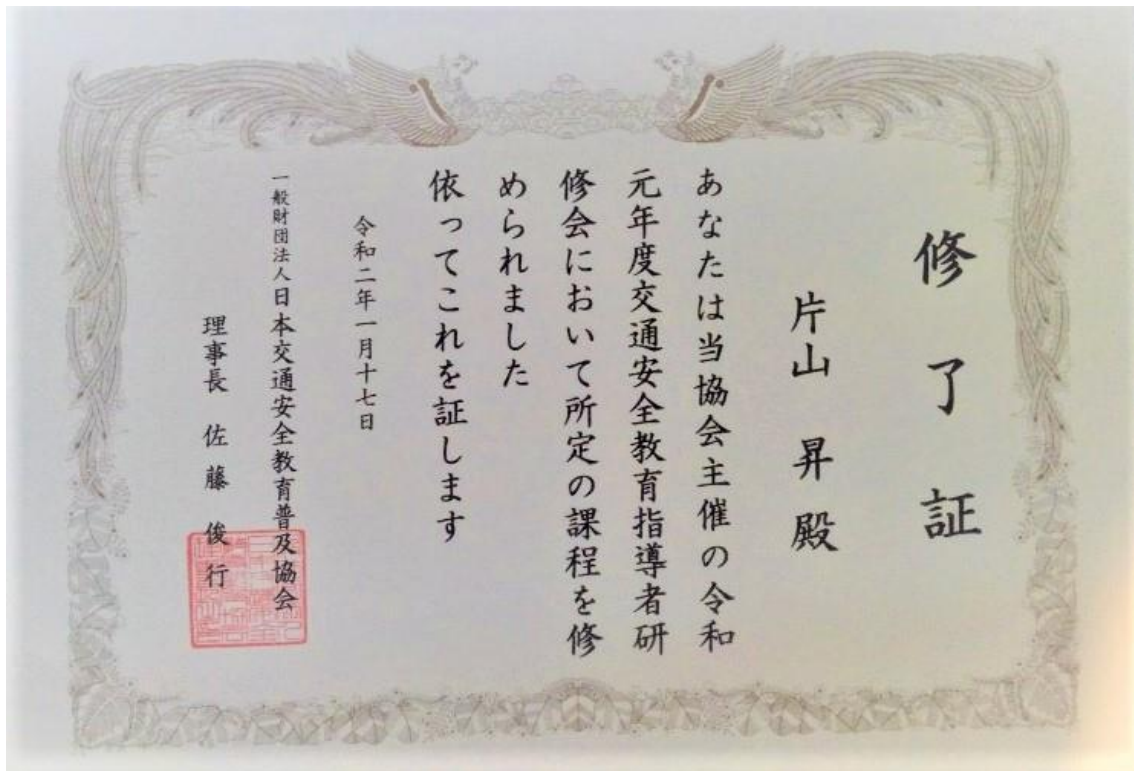 修了証
片山 昇殿
あなたは当協会主催の令和
元年度交通安全教育指導者研
修会において所定の課程を修
められました
依ってこれを証します
令和二年一月十七日
一般財団法人日本交通安全教育普及協会
理事長 佐藤 俊行